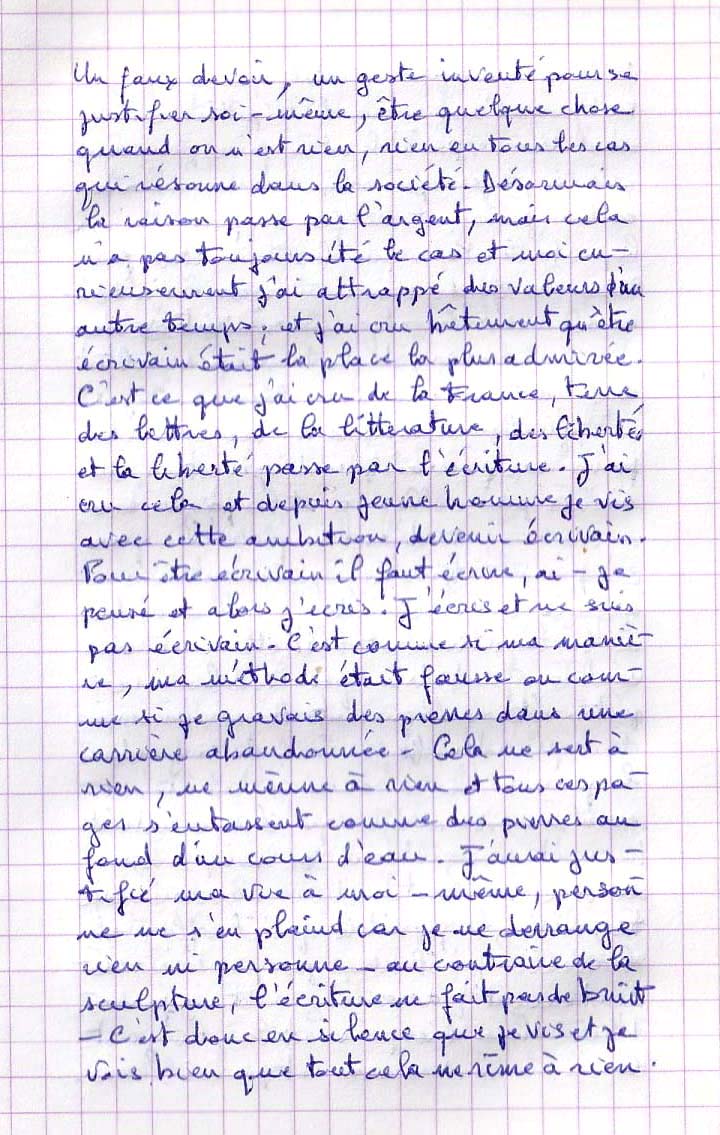 Un faux devoir, un geste inventé pour se
justifier soi-même, être quelque chose
quand on n'est rien, rien en tous les cas
qui résonne dans la société. Désormais
la raison passe par l'argent, mais cela
n'a pas toujours été le cas et moi cu-
rieusement j'ai attrappé des valeurs d'un
autre temps, et j'ai cru bêtement qu'être
écrivain était la place la plus admirée.
C'est ce que j'ai cru de la France, terre
des lettres, de la littérature, des libertés
et la liberté passe par l'écriture. J'ai
cru cela et depuis jeune homme je vis
avec cette ambition, devenir écrivain.
Pour être écrivain il faut écrire, ai-je
pensé et alors j'écris. J'écris et ne suis
pas écrivain. C'est comme si ma maniè-
re, ma méthode était fausse ou com-
me si je gravais des pierres dans une
carrière abandonnée - Cela ne sert à
rien, ne mène à rien et tous ces pa-
ges s'entassent comme des pierres au
fond d'un cours d'eau. J'aurai jus-
tifié ma vie à moi-même, person
ne ne s'en plaind car je ne derrange
rien ni personne - au contraire de la
sculpture, l'écriture ne fait pas de bruit
- C'est donc en silence que je vis et je
vois bien que tout cela ne rime à rien.